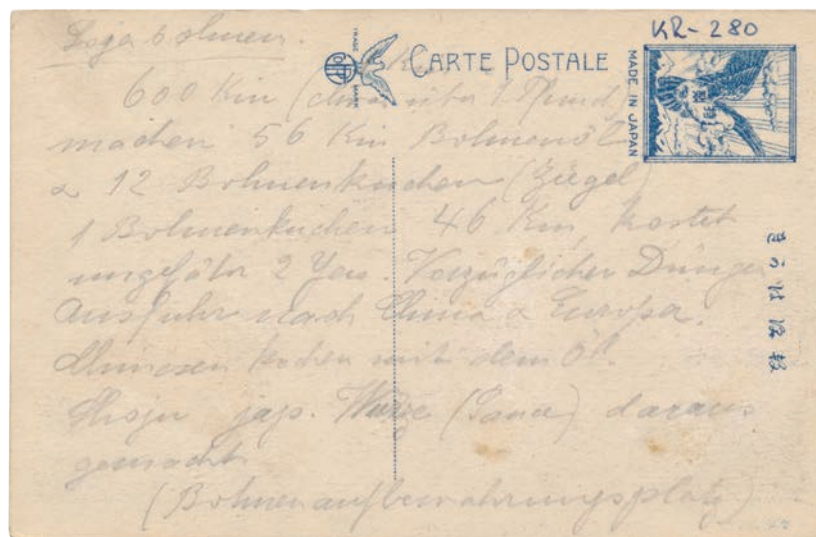 Soja bohnen.
TRADE MARK
CARTE POSTALE
KR-280
MADE IN JAPAN
600 Kin (China über 1 Pfund)
machen 56 Kin Bohnenöl
& 12 Bohnenkuchen (Ziegel)
1 Bohnenkuchen 46 Kin, kostet
ungefähr 2 Yen. Vorzüglicher Dünger
Ausfuhr nach China & Europa.
Chinesen kochen mit dem Öl.
Shoju jap. Würze (Sauce) daraus
gemacht
(Bohnenaufbewahrungsplatz)